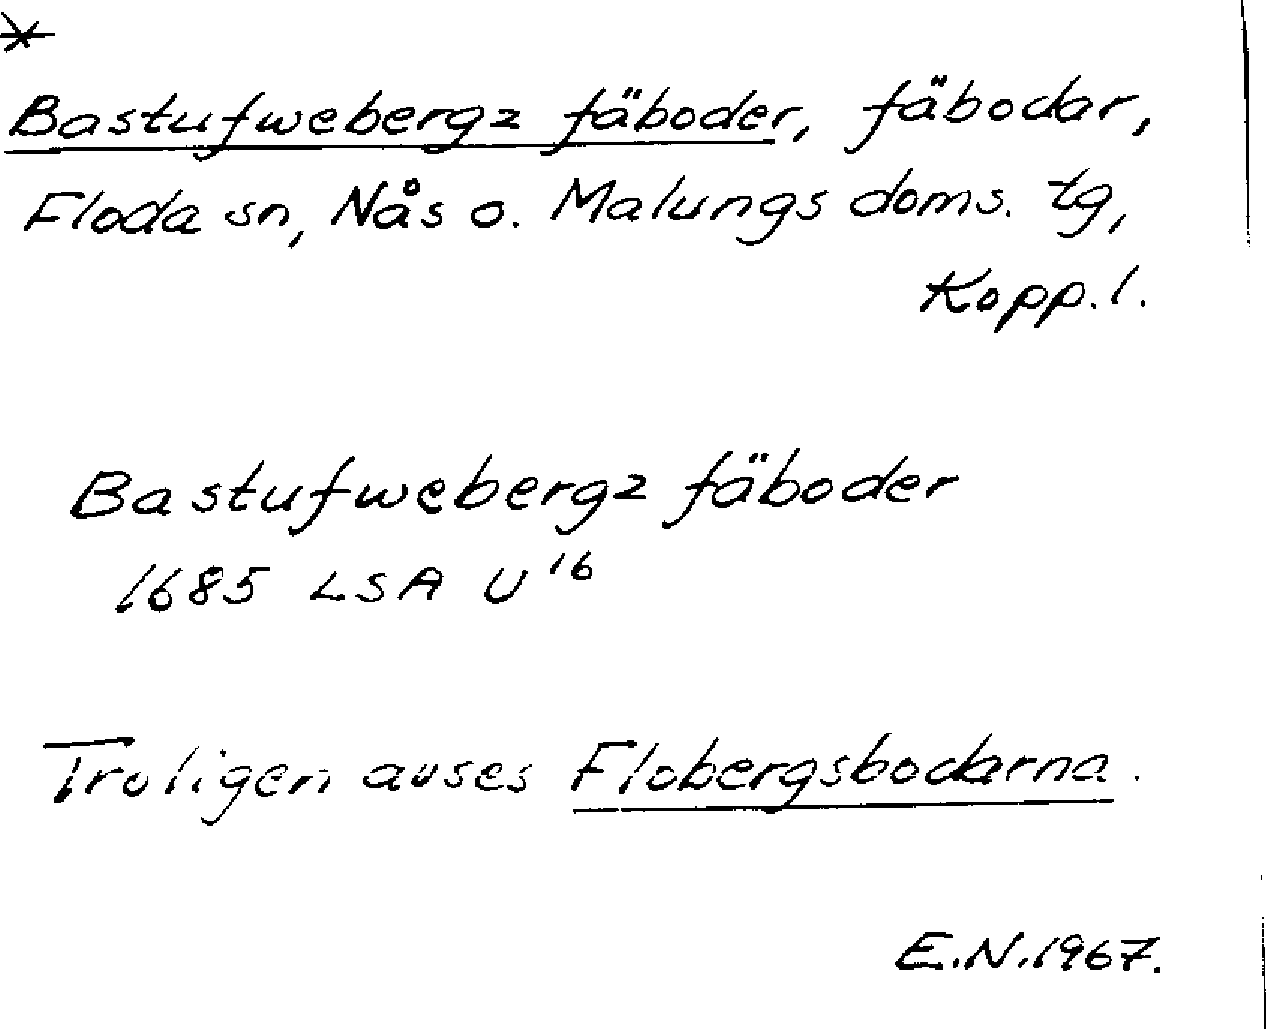 *
Bastufwebergz fäboder, fäbodar,
Floda sn, Nås o. Malungs doms. tg,
Kopp. l.
Bastufwebergz fäboder
1685 LSA U 16
Troligen avses Flobergsbodarna.
E.N. 1967.